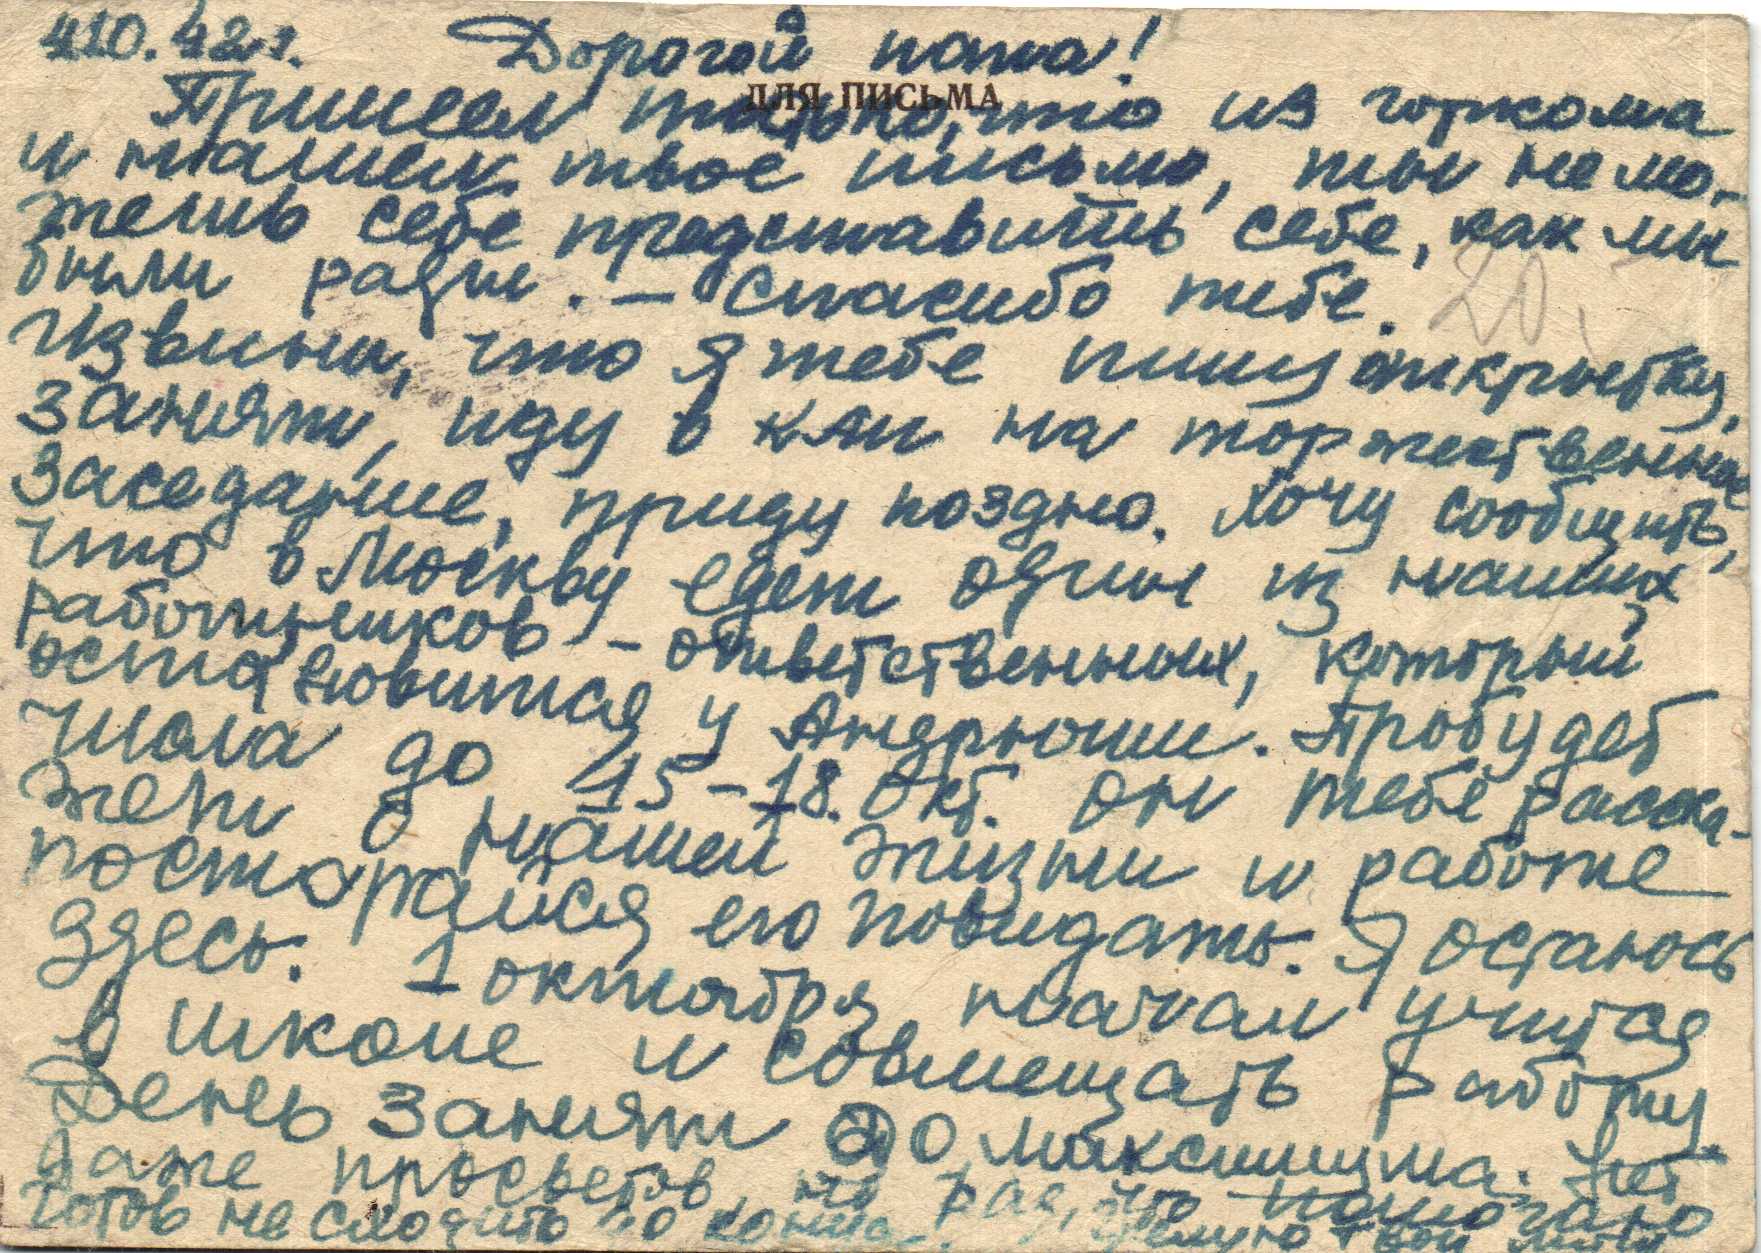 4.10.42 г. Дорогой папа!
ДЛЯ ПИСЬМА
Пришел только, что из горкома
и нашел твое письмо, ты не мо-
жешь себе представить себе, как мы
были рады. – Спасибо тебе.
Извини, что я тебе пишу открытку,
занят, иду в клуб на торжественное
заседание, приду поздно. Хочу сообщить,
что в Москву едет один из наших
работников – ответственных, который
остановится у Андрюши. Пробудет
числа до 15–18. окт. он тебе расска-
жет о нашей жизни и работе
постарайся его повидать. Я остаюсь
здесь. 1 октября начал учится
в школе и совмещать работу.
День занят до максимума. Нет
даже просветов, но рад, что помогаю
готов не сходить до конца. Целую твой